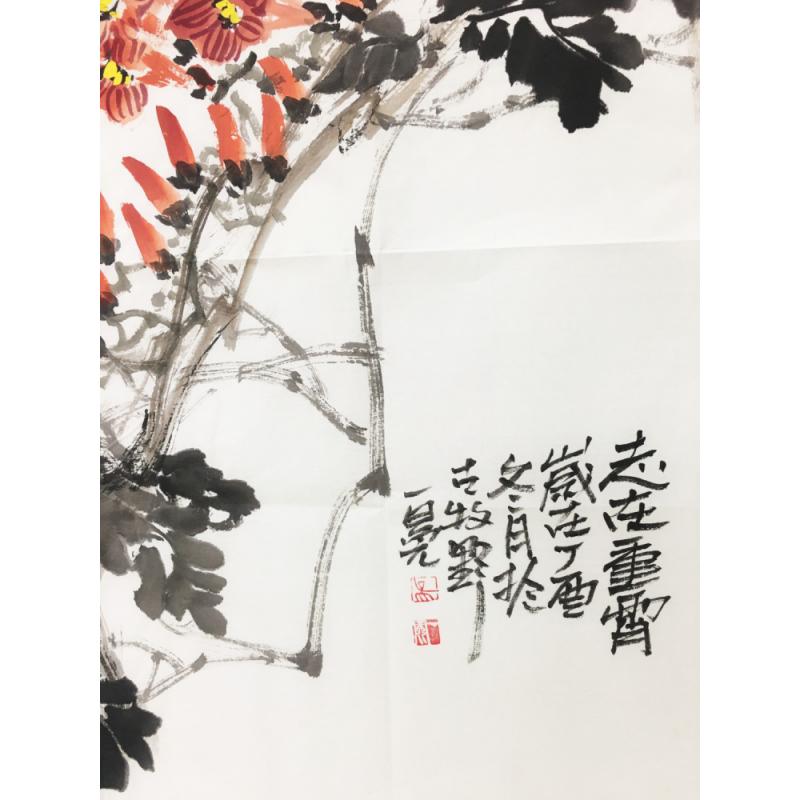 志在重霄
歲在丁酉
冬月於
古牧野
一亮